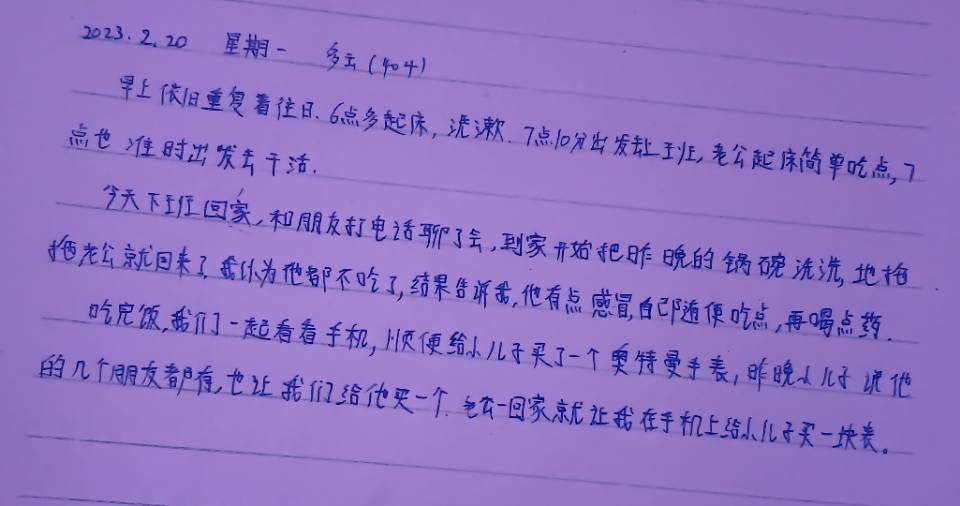 2023.2.20 星期一 多云(404)
早上依旧重复着往日.6点多起床,洗漱.7点10分出发去上班,老公起床简单吃点,7
点也准时出发去干活.
今天下班回家,和朋友打电话聊了会,到家开始把昨晚的锅碗洗洗,地拖
拖老公就回来了,我以为他都不吃了,结果告诉我,他有点感冒,自己随便吃点,再喝点药.
吃完饭,我们一起看看手机,顺便给小儿子买了一个奥特曼手表,昨晚小儿子说他
的几个朋友都有,也让我们给他买一个.老公一回家就让我在手机上给小儿子买一块表。